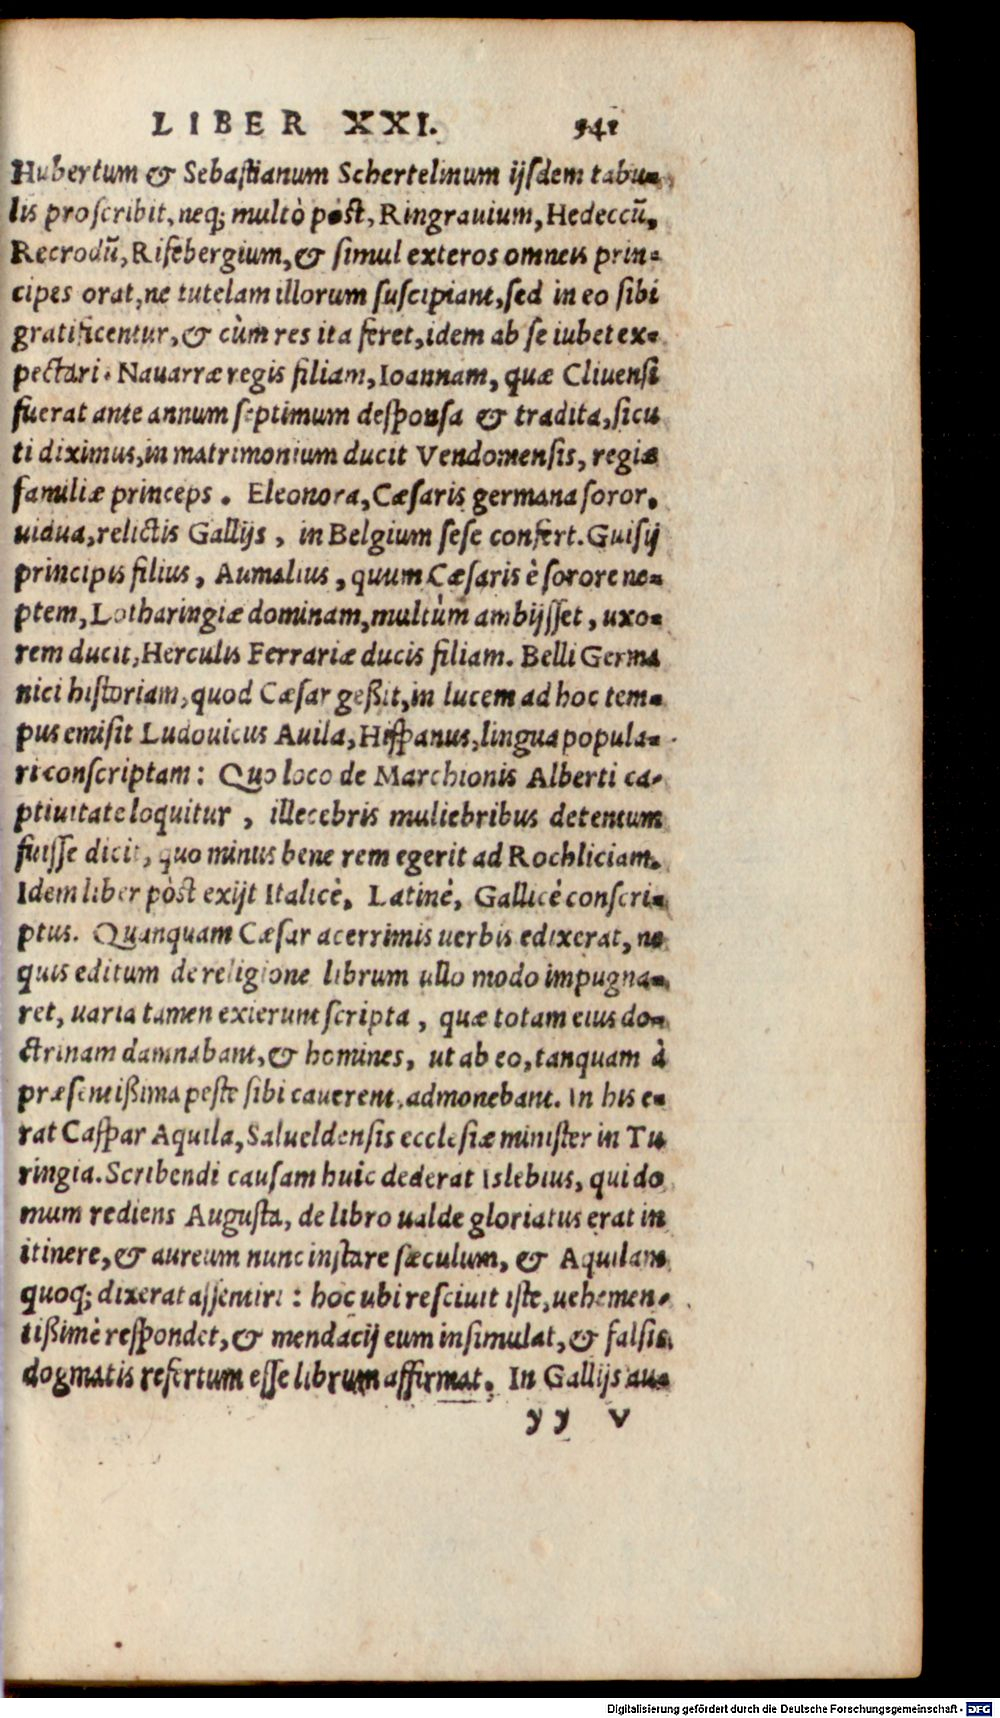 LIBER XXI. 941
Hubertum & Sebastianum Schertelinum ijsdem tabu-
lis proscribit, neq; multò pòst, Ringrauium, Hedeccũ,
Recrodũ, Rifebergium, & simul exteros omneis prin-
cipes orat, ne tutelam illorum suscipiant, sed in eo sibi
gratificentur, & cùm res ita feret, idem ab se iubet ex-
pectari. Nauarræ regis filiam, Ioannam, quæ Cliuensi
fuerat ante annum septimum desponsa & tradita, sicu
ti diximus, in matrimonium ducit Vendomensis, regiæ
familiæ princeps. Eleonora, Cæsaris germana soror,
uidua, relictis Gallijs, in Belgium sese confert. Guisij
principis filius, Aumalius, quum Cæsaris è sorore ne-
ptem, Lotharingiæ dominam, multùm ambijsset, uxo-
rem ducit, Herculis Ferrariæ ducis filiam. Belli Germa
nici historiam, quod Cæsar geßit, in lucem ad hoc tem-
pus emisit Ludouicus Auila, Hispanus, lingua popula-
ri conscriptam: Quo loco de Marchionis Alberti ca-
ptiuitate loquitur, illecebris muliebribus detentum
fuisse dicit, quo minus bene rem egerit ad Rochliciam.
Idem liber pòst exijt Italicè, Latinè, Gallicè conscri-
ptus. Quanquam Cæsar acerrimis uerbis edixerat, ne
quis editum de religione librum ullo modo impugna-
ret, uaria tamen exierunt scripta, quæ totam eius do-
ctrinam damnabant, & homines, ut ab eo, tanquam à
præsentißima peste sibi cauerent, admonebant. In his e-
rat Caspar Aquila, Salueldensis ecclesiæ minister in Tu
ringia. Scribendi causam huic dederat Islebius, qui do
mum rediens Augusta, de libro ualde gloriatus erat in
itinere, & aureum nunc instare sæculum, & Aquilam
quoq; dixerat assentiri: hoc ubi resciuit iste, uehemen-
tißimè respondet, & mendacij eum insimulat, & falsis
dogmatis refertum esse librum affirmat. In Gallijs au-
yy v
Digitalisierung gefördert durch die Deutsche Forschungsgemeinschaft - DFG